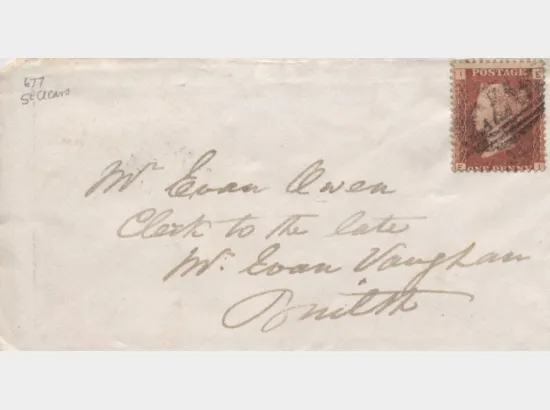 677
St Clears
I E
POSTAGE
Mr Evan Owen
Clerk to the late
Mr. Evan Vaughan
Builth
E I